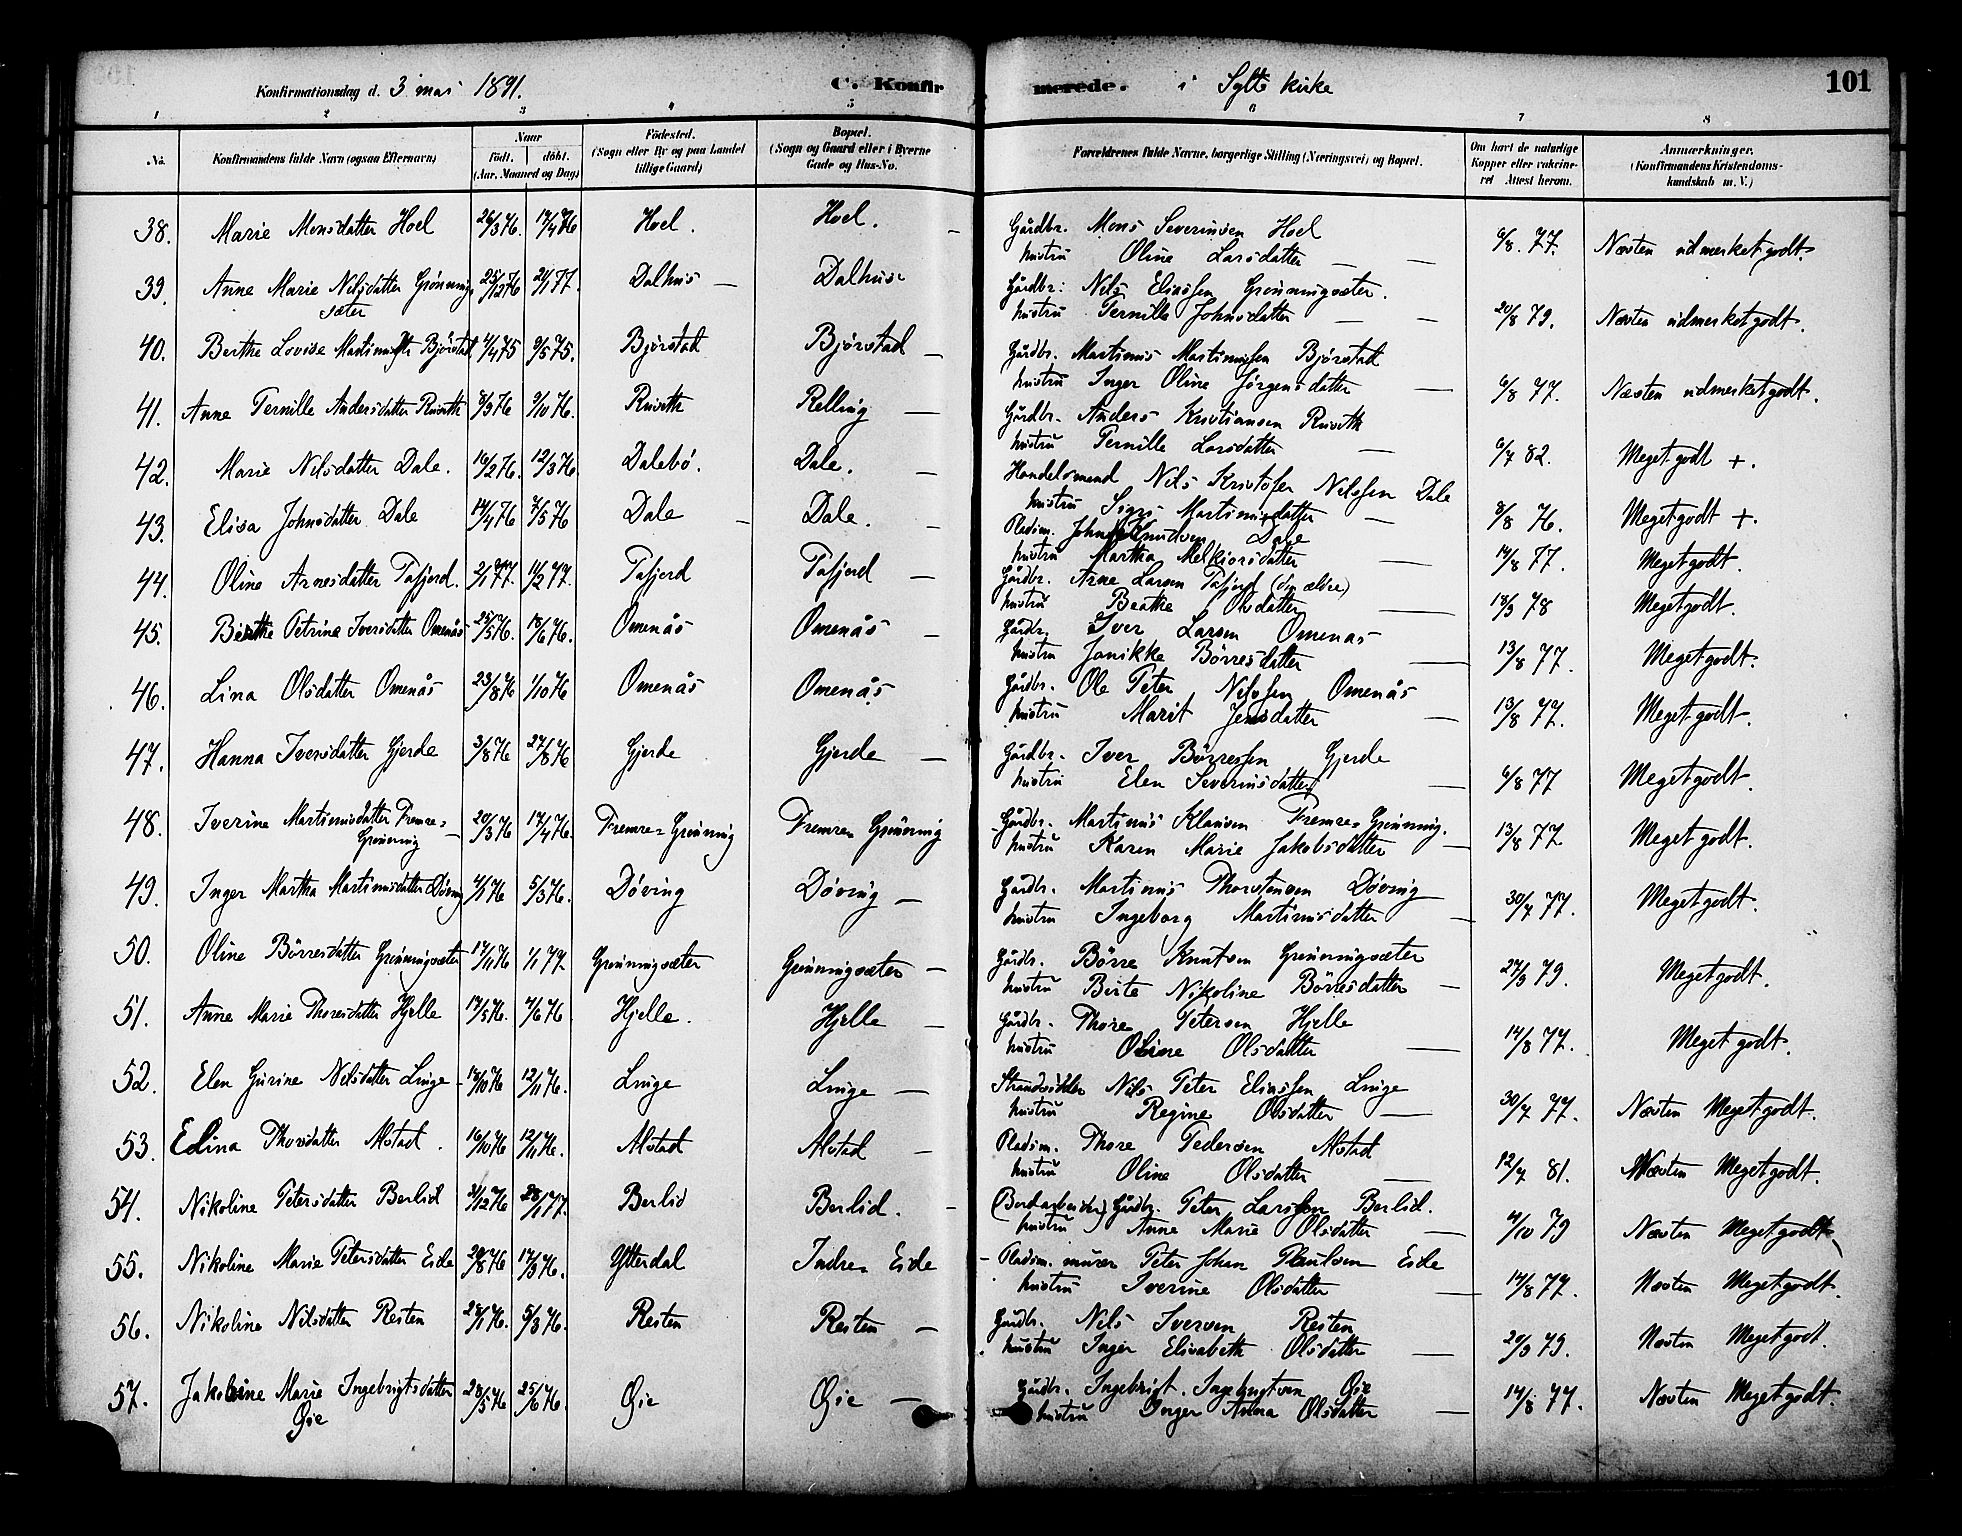 Konfirmationsdag d. 3 mai 1891. C. Konfirmerede. i Sylte kirke 101
1 2 3 4 5 6 7 8
No. Konfirmandens fulde Navn (ogsaa Efternavn) Naar födt. döbt. (Aar, Maaned og Dag) Födested. (Sogn eller By og paa Landet tillige Gaard) Bopæl. (Sogn og Gaard eller i Byerne Gade og Hus-No. Forældrenes fulde Navne, borgerlige Stilling (Næringsvei) og Bopæl. Om havt de naturlige Kopper eller vakcineret Attest herom. Anmærkninger. (Konfirmandens Kristendomskundskab m. V.)
38. Marie Monsdatter Hoel 26/3 76. 17/4 76 Hoel. Hoel. Gårdbr. Mons Severinsen Hoel
hustru Oline Larsdatter — — 6/8. 77. Næsten udmerket godt.
39. Anne Marie Nilsdatter Grönnings 25/12 76 21/1 77. Dalhus — Dalhus Gårdbr: Nils Eliassen Grönningsæter.
sæter hustru Pernille Johnsdatter — — 20/8 79. Næsten udmerket godt.
40. Berthe Lovise Martinusdtr Björstad 4/4 75 9/5 75. Björstad Björstad — Gårdbr. Martinus Martinussen Björstad
hustru Inger Oline Jörgensdatter — 6/8 77. Næsten udmerket godt.
41. Anne Pernille Andersdatter Rusveth 8/9 76 9/10 76. Rusveth Relling — Gårdbr. Anders Kristiansen Rusveth
hustru Pernille Larsdatter — 6/7 82. Meget godt +.
42. Marie Nilsdatter Dale. 16/2 76. 12/3 76 Dalebö. Dale. — Handelsmand Nils Kristofer Nilssen Dale
hustru Signe Martinusdatter — 8/8 76. Meget godt +.
43. Elisa Johnsdatter Dale 14/4 76 7/5 76 Dale — Dale. — Pladsm. John Knudsen Dale
hustru Martha Melkiorsdatter — 14/8 77. Meget godt.
44. Oline Arnesdatter Tafjord. 2/1 77. 11/2 77. Tafjord Tafjord — Gårdbr. Arne Larsen Tafjord (den ældre)
hustru Berthe Olsdatter — 18/9 78 Meget godt.
45. Berthe Petrine Iversdatter Omenås 25/5 76. 18/6 76. Omenås Omenås — Gårdbr. Iver Larsen Omenas
hustru Janikke Börresdatter — 13/8 77. Meget godt.
46. Lina Olsdatter Omenås 23/8 76 1/10 76 Omenås Omenås Gårdbr. Ole Peter Nilssen Omenås
hustru Marit Jensdatter — 13/8 77. Meget godt.
47. Hanna Iversdatter Gjerde 3/8 76 27/8 76 Gjerde Gjerde — Gårdbr. Iver Börressen Gjerde
hustru Elen Severinsdatter — 6/8 77 Meget godt.
48. Iverine Martinusdatter Fremre= 20/3 76 17/4 76. Fremre= Grönning Fremre= Grönning Gårdbr. Martinus Klausen Fremre= Grönning.
Grönning hustru Karen Marie Jakobsdatter — 13/8 77 Meget godt.
49. Inger Martha Martinusdatter Döving 4/1 76 5/3 76. Döving Döving — Gårdbr. Martinus Thorstensen Döving
hustru Ingeborg Martinusdatter — 30/7 77. Meget godt.
50. Oline Börresdatter Grönningsæter 17/11 76 1/1 77. Grönningsæter Grönningsæter — Gårdbr. Börre Knutsen Grönningsæter
hustru Berte Nikoline Börresdatter — 27/9 79. Meget godt.
51. Anne Marie Thoresdatter Hjelle 17/5 76. 4/6 76 Hjelle. Hjelle — Gårdbr. Thore Petersen Hjelle
hustru Oline Olsdatter — 14/8 77. Meget godt.
52. Elen Gurine Nilsdatter Linge 18/10 76 12/11 76. Linge Linge — Strandsidder Nils Peter Eliassen Linge
hustru Regine Olsdatter — 30/7 77. Næsten Meget godt.
53. Edina Thorsdatter Alstad. 16/10 76 12/11 76. Alstad Alstad — Pladsm. Thore Pedersen Alstad
hustru Oline Olsdatter — 12/7 81. Næsten Meget godt.
54. Nikoline Petersdatter Berlid 31/12 76 28/1 77. Berlid Berlid. — Gårdbr. Peter Larssen Berlid.
hustru Anne Marie Olsdatter — 4/10 79 Næsten Meget godt
55. Nikoline Marie Petersdatter Eide 20/8 76 17/9 76. Ytterdal Indre= Eide — Pladsm. murer Peter Johan Paulsen Eide
hustru Iverine Olsdatter — 14/8 77. Næsten Meget godt.
56. Nikoline Nilsdatter Resten 28/1 76. 5/3 76. Resten Resten — Gårdbr. Nils Iversen Resten
hustru Inger Elisabeth Olsdatter — 20/9 79. Næsten Meget godt.
57. Jakobine Marie Ingebrigtsdatter 28/5 76 25/6 76. Øie Øie — Gårdbr. Ingebrigt Ingebrigtsen Øie
Øie hustru Inger Anna Olsdatter — 14/8 77. Næsten Meget godt.